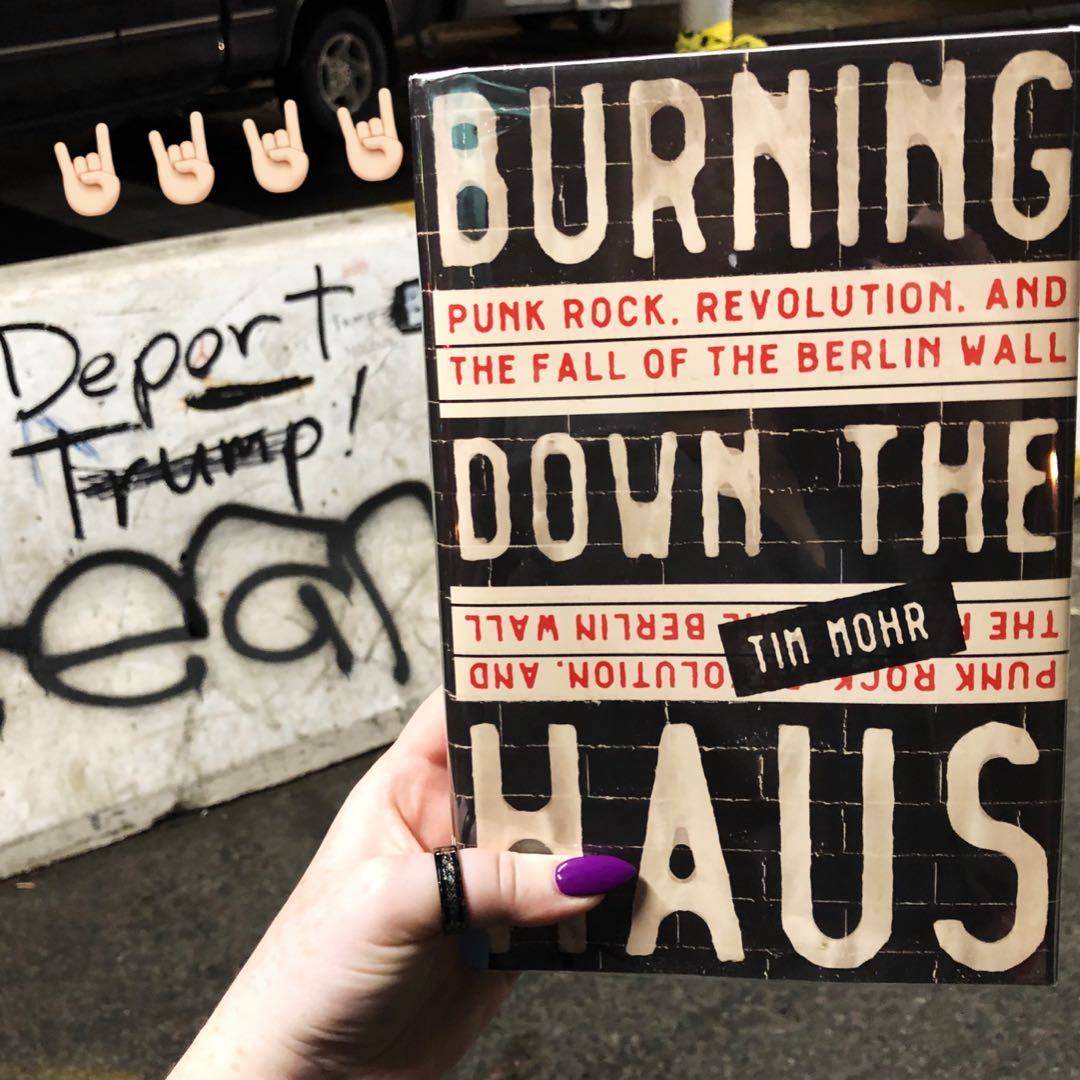 BURNING
PUNK ROCK, REVOLUTION, AND
THE FALL OF THE BERLIN WALL
DOWN THE
TIM MOHR
THE BERLIN WALL
PUNK ROCK, OLUTION, AND
HAUS
Deport
Trump!
ear